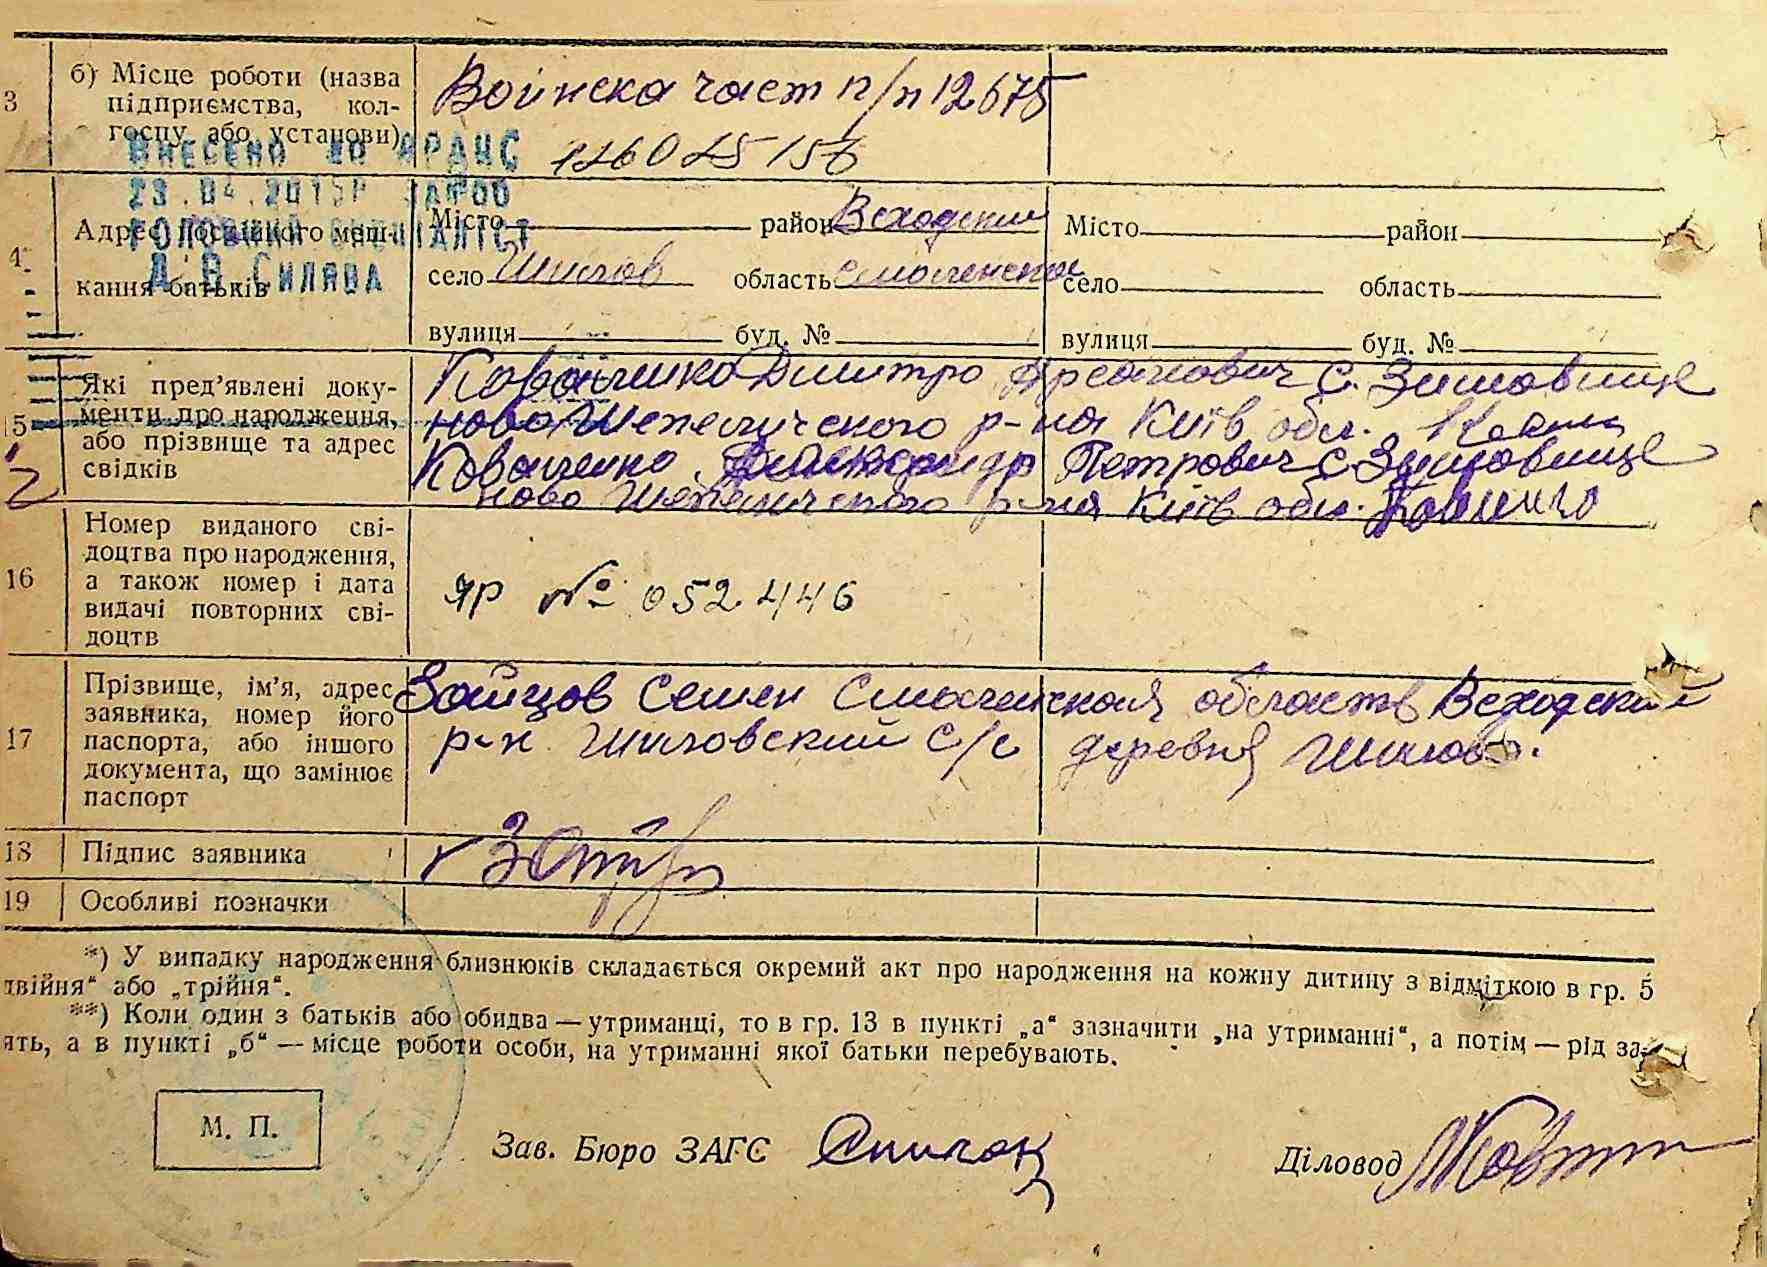 3
б) Місце роботи (назва
підприємства, кол-
госпу або установи)
Воинска част п/п 12675
ВНЕСЕНО ДО ДРАЦС
23.04.2015Р
ГОЛОВНИЙ СПЕЦІАЛІСТ
Адрес постійного меш-
кання батьків
Місто район Всходский
село Шилов область Смоленская
вулиця буд. №
Місто район
село область
вулиця буд. №
15
Які пред'явлені доку-
менти про народження,
або прізвище та адрес
свідків
Коваленко Дмитро с. Зимовище
ново Шепелического р-на Київ обл.
Коваленко Александр Петрович с. Зимовище
ново Шепелического р-на Київ обл.
16
Номер виданого сві-
доцтва про народження,
а також номер і дата
видачі повторних сві-
доцтв
ЯР № 052446
17
Прізвище, ім'я, адрес
заявника, номер його
паспорта, або іншого
документа, що замінює
паспорт
Зайцов Семен Смоленская область Всходский
р-н Шиловский с/с деревня Шилово.
18 Підпис заявника
19 Особливі позначки
*) У випадку народження близнюків складається окремий акт про народження на кожну дитину з відміткою в гр. 5
двійня“ або „трійня“.
**) Коли один з батьків або обидва — утриманці, то в гр. 13 в пункті „а“ зазначити „на утриманні“, а потім — рід за-
ять, а в пункті „б“ — місце роботи особи, на утриманні якої батьки перебувають.
М. П.
Зав. Бюро ЗАГС
Діловод